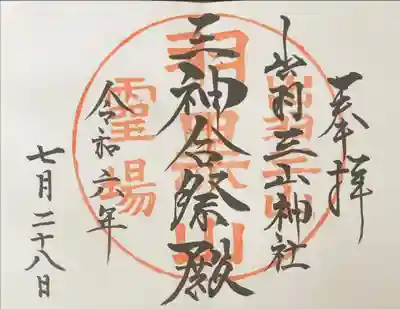 奉拝
出羽三山神社
三神合祭殿
令和六年
七月二十八日
羽黒山
霊場